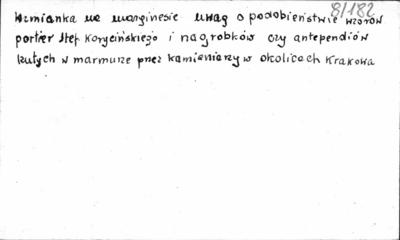 8/182
Wzmianka na marginesie uwag o podobieństwie wzorów
portier Stef Korycińskiego i nagrobków czy antependiów
kutych w marmurze przez kamieniarzy w okolicach Krakowa